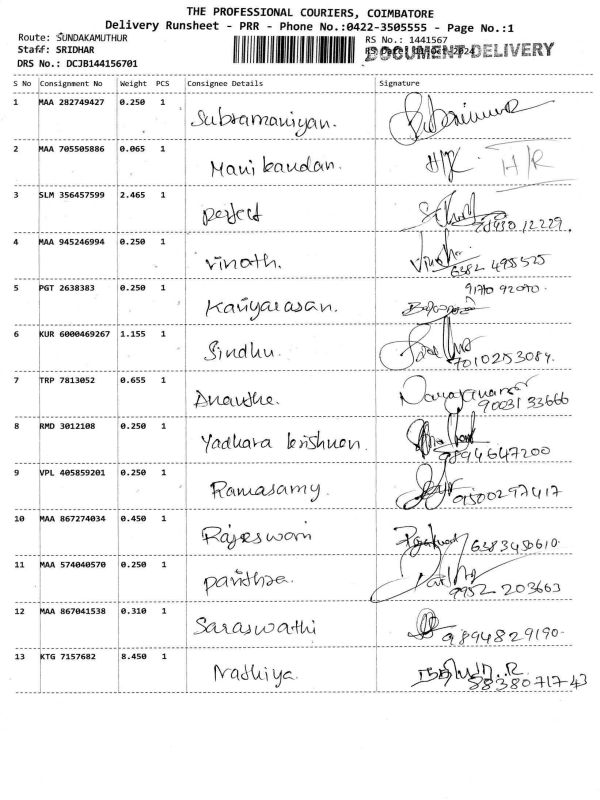 THE PROFESSIONAL COURIERS, COIMBATORE
Delivery Runsheet - PRR - Phone No.:0422-3505555 - Page No.:1
Route: SUNDAKAMUTHUR RS No.: 1441567
Staff: SRIDHAR DOCUMENT DELIVERY
DRS No.: DCJB144156701
S No Consignment No Weight PCS Consignee Details Signature
1 MAA 282749427 0.250 1 Subramaniyan.
2 MAA 705505886 0.065 1 Manikandan. H/R
3 SLM 356457599 2.465 1 perfect
4 MAA 945246994 0.250 1 Vinoth. 6382 495525
5 PGT 2638383 0.250 1 Kaviyarasan.
6 KUR 6000469267 1.155 1 Sindhu. 7010253084.
7 TRP 7813052 0.655 1 9003133666
8 RMD 3012108 0.250 1 Yadhava krishnan. 9894647200
9 VPL 405859201 0.250 1 Ramasamy. 9500297417
10 MAA 867274034 0.450 1 Rajeswari 6383450610.
11 MAA 574040570 0.250 1 9952 203663
12 MAA 867041538 0.310 1 Saraswathi 9894829190.
13 KTG 7157682 8.450 1 Nathiya. 8838071743